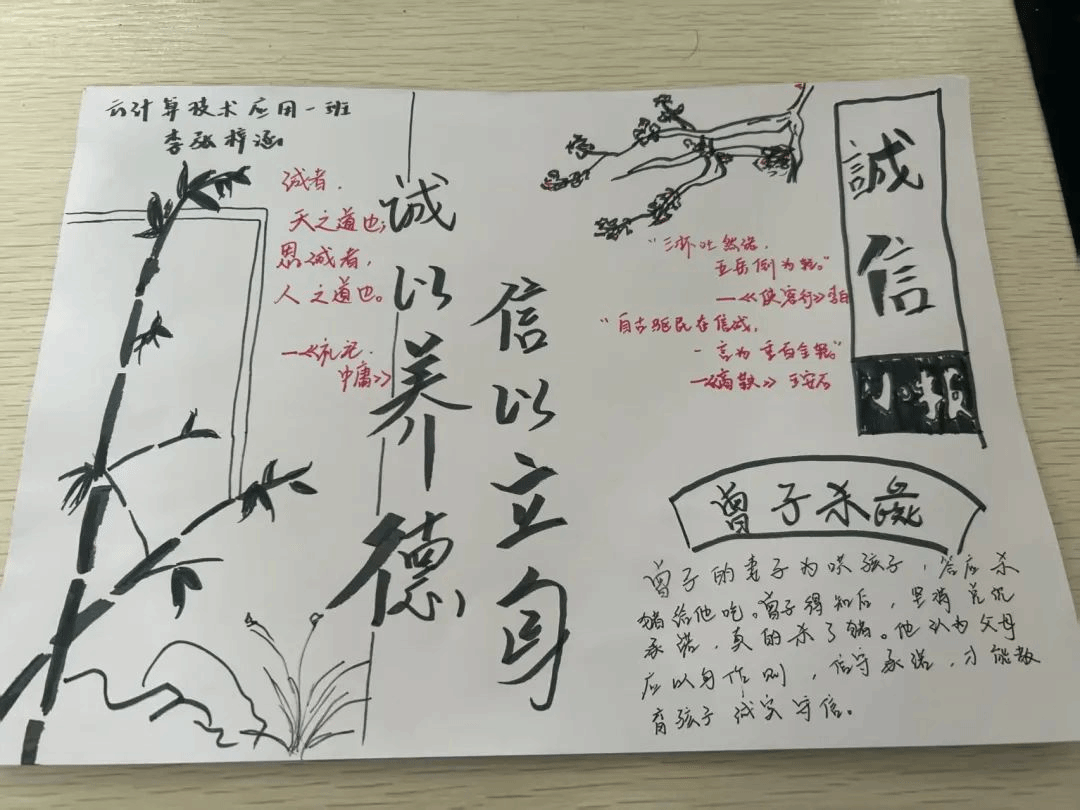 云计算技术应用一班
李张梓涵
诚者,
天之道也;
思诚者,
人之道也。
—《礼记·
中庸》
诚以养德
信以立身
"三杯吐然诺,
五岳倒为轻。"
—《侠客行》李白
"自古驱民在信诚,
一言为重百金轻。"
—《商鞅》王安石
誠信
小报
曾子杀彘
曾子的妻子为哄孩子,答应杀
猪给他吃。曾子得知后,坚持兑现
承诺,真的杀了猪。他认为父母
应以身作则,信守承诺,才能教
育孩子诚实守信。